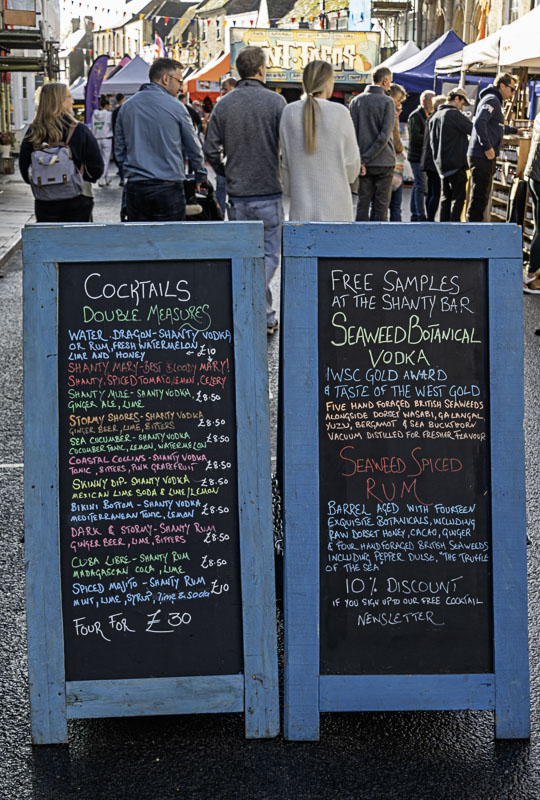 COCKTAILS
DOUBLE MEASURES
WATER DRAGON - SHANTY VODKA
OR RUM, FRESH WATERMELON
LIME AND HONEY ← £10
SHANTY MARY - BEST BLOODY MARY!
SHANTY, SPICED TOMATO, LEMON, CELERY
SHANTY MULE - SHANTY VODKA,
GINGER ALE, LIME £8.50
STORMY SHORES - SHANTY VODKA
GINGER BEER, LIME, BITTERS £8.50
SEA CUCUMBER - SHANTY VODKA
CUCUMBER TONIC, LEMON, WATERMELON £8.50
COASTAL COLLINS - SHANTY VODKA
TONIC, BITTERS, PINK GRAPEFRUIT £8.50
SKINNY DIP - SHANTY VODKA
MEXICAN LIME SODA & LIME/LEMON £8.50
BIKINI BOTTOM - SHANTY VODKA
MEDITERRANEAN TONIC, LEMON £8.50
DARK & STORMY - SHANTY RUM
GINGER BEER, LIME, BITTERS £8.50
CUBA LIBRE - SHANTY RUM
MADAGASCAN COLA, LIME £8.50
SPICED MOJITO - SHANTY RUM
MINT, LIME, SYRUP, lime & soda £10
FOUR FOR £30
FREE SAMPLES
AT THE SHANTY BAR
SEAWEED BOTANICAL
VODKA
IWSC GOLD AWARD
& TASTE OF THE WEST GOLD
FIVE HAND FORAGED BRITISH SEAWEEDS
ALONGSIDE DORSET WASABI, GALANGAL,
YUZU, BERGAMOT & SEA BUCKTHORN
VACUUM DISTILLED FOR FRESHER FLAVOUR
SEAWEED SPICED
RUM
BARREL AGED WITH FOURTEEN
EXQUISITE BOTANICALS, INCLUDING
RAW DORSET HONEY, CACAO, GINGER
& FOUR HAND FORAGED BRITISH SEAWEEDS
INCLUDING PEPPER DULSE, "THE TRUFFLE
OF THE SEA
10% DISCOUNT
IF YOU SIGN UP TO OUR FREE COCKTAIL
NEWSLETTER